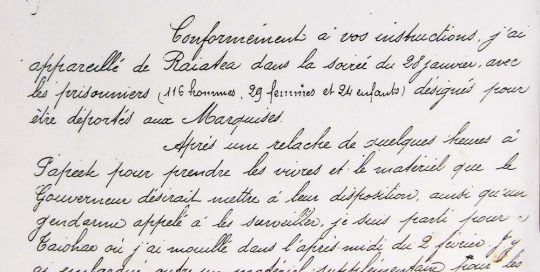 Conformément à vos instructions, j'ai
appareillé de Raiatea dans la soirée du 28 janvier, avec
les prisonniers (116 hommes, 29 femmes et 24 enfants) désignés pour
être déportés aux Marquises.
Après une relache de quelques heures à
Papeete pour prendre les vivres et le matériel que le
Gouverneur désirait mettre à leur disposition, ainsi qu'un
gendarme appelé à les surveiller, je suis parti pour
Taiohae où j'ai mouillé dans l'après midi du 2 février. J'y
ai embarqué outre un matériel supplémentaire pour les